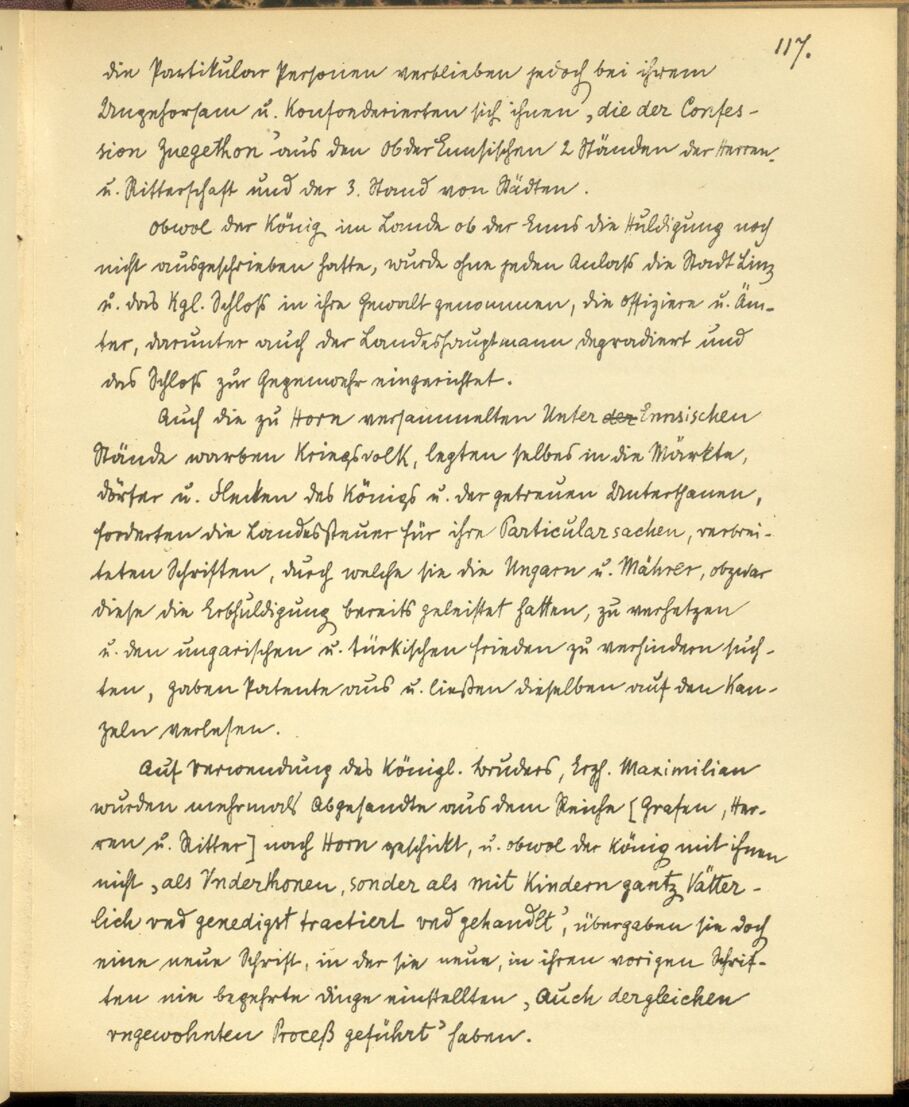 117.
die Partikular Personen verblieben jedoch bei ihrem
Ungehorsam u. Konfoederierten sich ihnen „die der Confes-
sion Zuegethon" aus den Ob der Ennsischen 2 Ständen der Herren
u. Ritterschaft und der 3. Stand von Städten.
Obwol der König im Lande ob der Enns die Huldigung noch
nicht ausgeschrieben hatte, wurde ohne jeden Anlaß die Stadt Linz
u. das Kgl. Schloß in ihre Gewalt genommen, die Offiziere u. Äm-
ter, darunter auch der Landeshauptmann degradiert und
das Schloß zur Gegenwehr eingerichtet.
Auch die zu Horn versammelten Unter der Ennsischen
Stände warben Kriegsvolk, legten selbes in die Märkte,
Dörfer u. Flecken des Königs u. der getreuen Unterthanen,
forderten die Landessteuer für ihre Particularsachen, verbrei-
teten Schriften, durch welche sie die Ungarn u. Mährer, obzwar
diese die Erbhuldigung bereits geleistet hatten, zu verhetzen
u. den ungarischen u. türkischen Frieden zu verhindern such-
ten, gaben Patente aus u. ließen dieselben auf den Kan-
zeln verlesen.
Auf Verwendung des Königl. Bruders, Erzh. Maximilian
wurden mehrmals Abgesandte aus dem Reiche [Grafen, Her-
ren u. Ritter] nach Horn geschickt, u. obwol der König mit ihnen
nicht „als Vnderthonen, sonder als mit Kindern gantz Vätter-
lich vnd genedigst tractiert vnd gehandlt", übergaben sie doch
eine neue Schrift, in der sie neue, in ihren vorigen Schrif-
ten nie begehrte Dinge einstellten „auch dergleichen
vngewohnten Proceß geführt" haben.